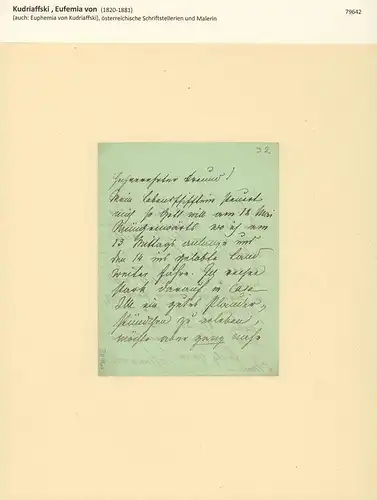 Kudriaffski , Eufemia von (1820-1881)
79642
(auch: Euphemia von Kudriaffski), österreichische Schriftstellerien und Malerin
32
Hochverehrter Freund!
Mein Lebensschifflein steuert
mich so Gott will am 12 Mai
wo ich am
13 Mittags anlange und
den 14 ins gelobte Land
weiter fahre. Ich rechne
stark darauf in Casa
ein gutes Plauder-
stündchen zu erleben,
möchte aber ganz